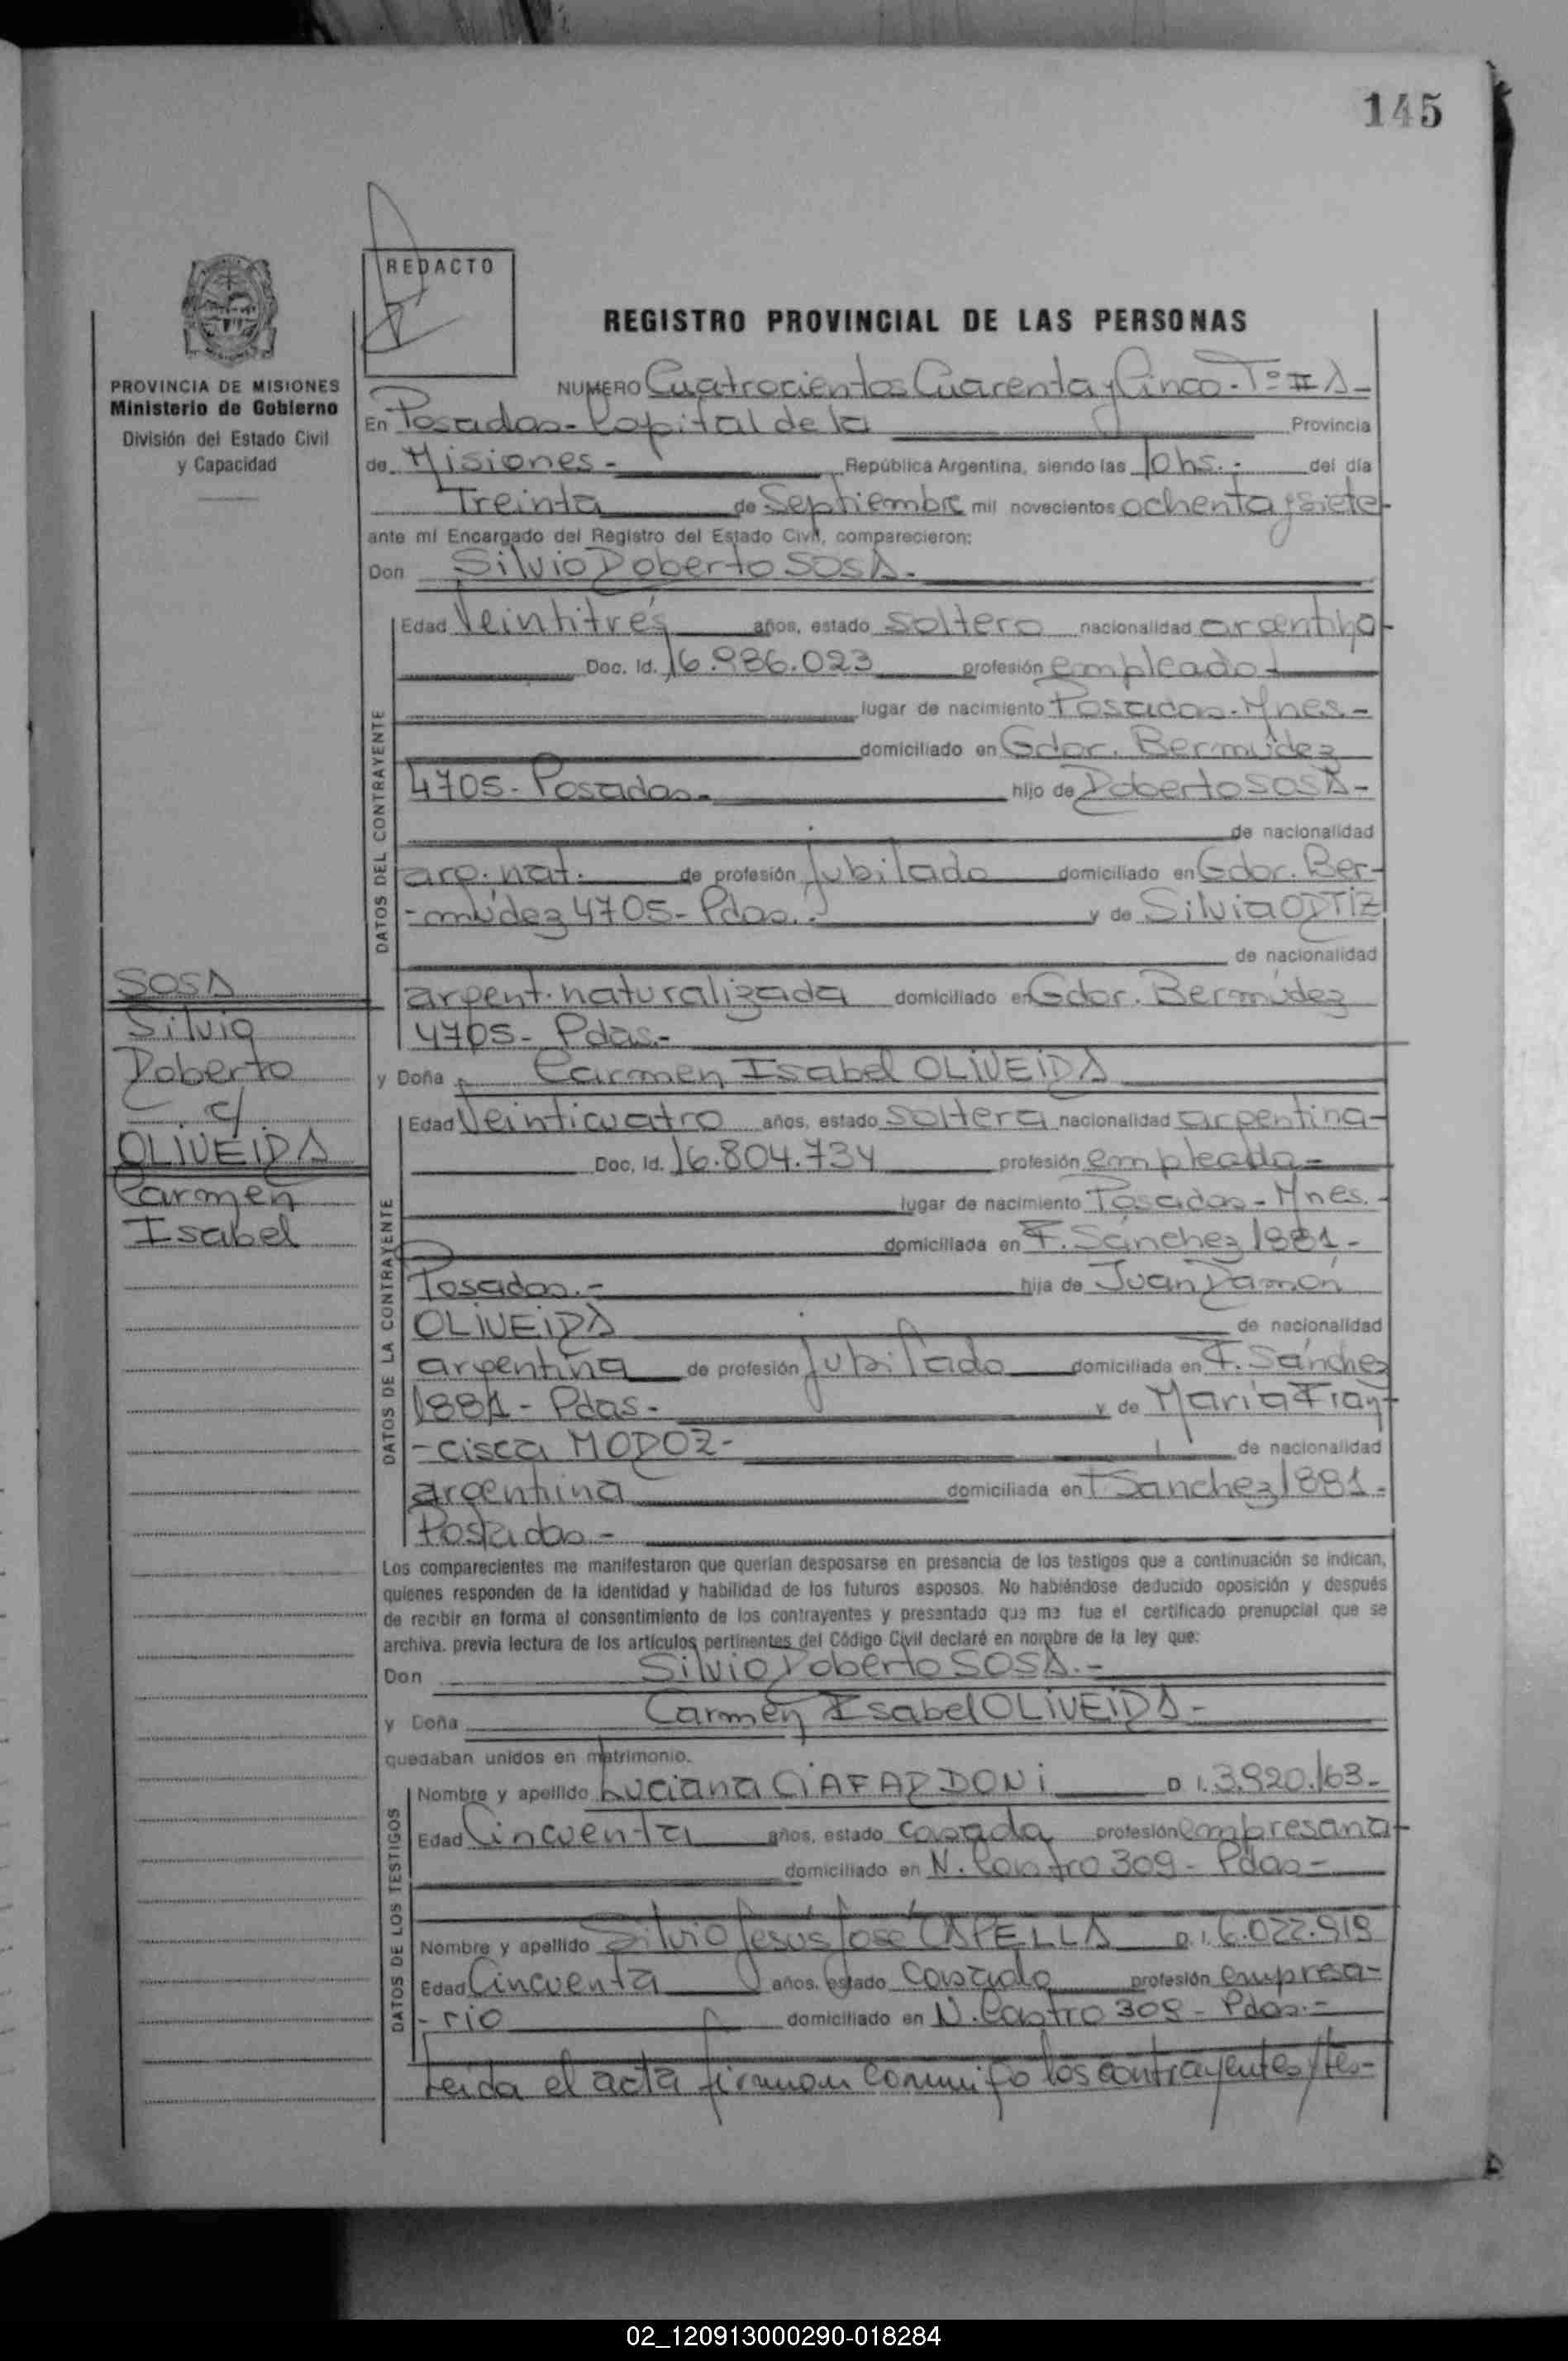 145
REDACTO
PROVINCIA DE MISIONES
Ministerio de Gobierno
División del Estado Civil
y Capacidad
REGISTRO PROVINCIAL DE LAS PERSONAS
NUMERO Cuatrocientos Cuarenta y Cinco.- Tº II A-
En Posadas- Capital de la Provincia
de Misiones- República Argentina, siendo las 10hs.- del día
Treinta de Septiembre mil novecientos ochenta y siete-
ante mí Encargado del Registro del Estado Civil, comparecieron:
Don Silvio Roberto SOSA.-
DATOS DEL CONTRAYENTE
Edad Veintitrés años, estado soltero nacionalidad argentino-
Doc. Id. 16.986.023 profesión empleado-
lugar de nacimiento Posadas-Mnes.-
domiciliado en Gdor. Bermúdez
4705- Posadas- hijo de Roberto SOSA-
de nacionalidad
arg. nat. de profesión Jubilado domiciliado en Gdor. Ber-
-múdez 4705- Pdas.- y de Silvia ORTIZ
de nacionalidad
argent. naturalizada domiciliado en Gdor. Bermúdez
4705- Pdas.-
SOSA
Silvio
Roberto
c/
OLIVEIRA
Carmen
Isabel
y Doña Carmen Isabel OLIVEIRA
DATOS DE LA CONTRAYENTE
Edad Veinticuatro años, estado soltera nacionalidad argentina-
Doc. Id. 16.804.734 profesión empleada-
lugar de nacimiento Posadas- Mnes.-
domiciliada en F. Sánchez 1881-
Posadas.- hija de Juan Ramón
OLIVEIRA de nacionalidad
argentina de profesión Jubilado domiciliada en F. Sánchez
1881- Pdas- y de María Fran-
-cisca MOROZ- de nacionalidad
argentina domiciliada en F Sanchez 1881-
Posadas-
Los comparecientes me manifestaron que querían desposarse en presencia de los testigos que a continuación se indican,
quienes responden de la identidad y habilidad de los futuros esposos. No habiéndose deducido oposición y después
de recibir en forma el consentimiento de los contrayentes y presentado que me fue el certificado prenupcial que se
archiva. previa lectura de los artículos pertinentes del Código Civil declaré en nombre de la ley que:
Don Silvio Roberto SOSA.-
y Doña Carmen Isabel OLIVEIRA-
quedaban unidos en matrimonio.
DATOS DE LOS TESTIGOS
Nombre y apellido Luciana CIAFARDONI D.I. 3.920.163-
Edad Cincuenta años, estado casada profesión empresaria-
domiciliado en N. Castro 309- Pdas-
Nombre y apellido Silvio Jesús José CAPELLA D.I. 6.022.919
Edad Cincuenta años, estado casado profesión empresa-
-rio domiciliado en N. Castro 309- Pdas.-
Leída el acta firman conmigo los contrayentes y tes-
02_120913000290-018284